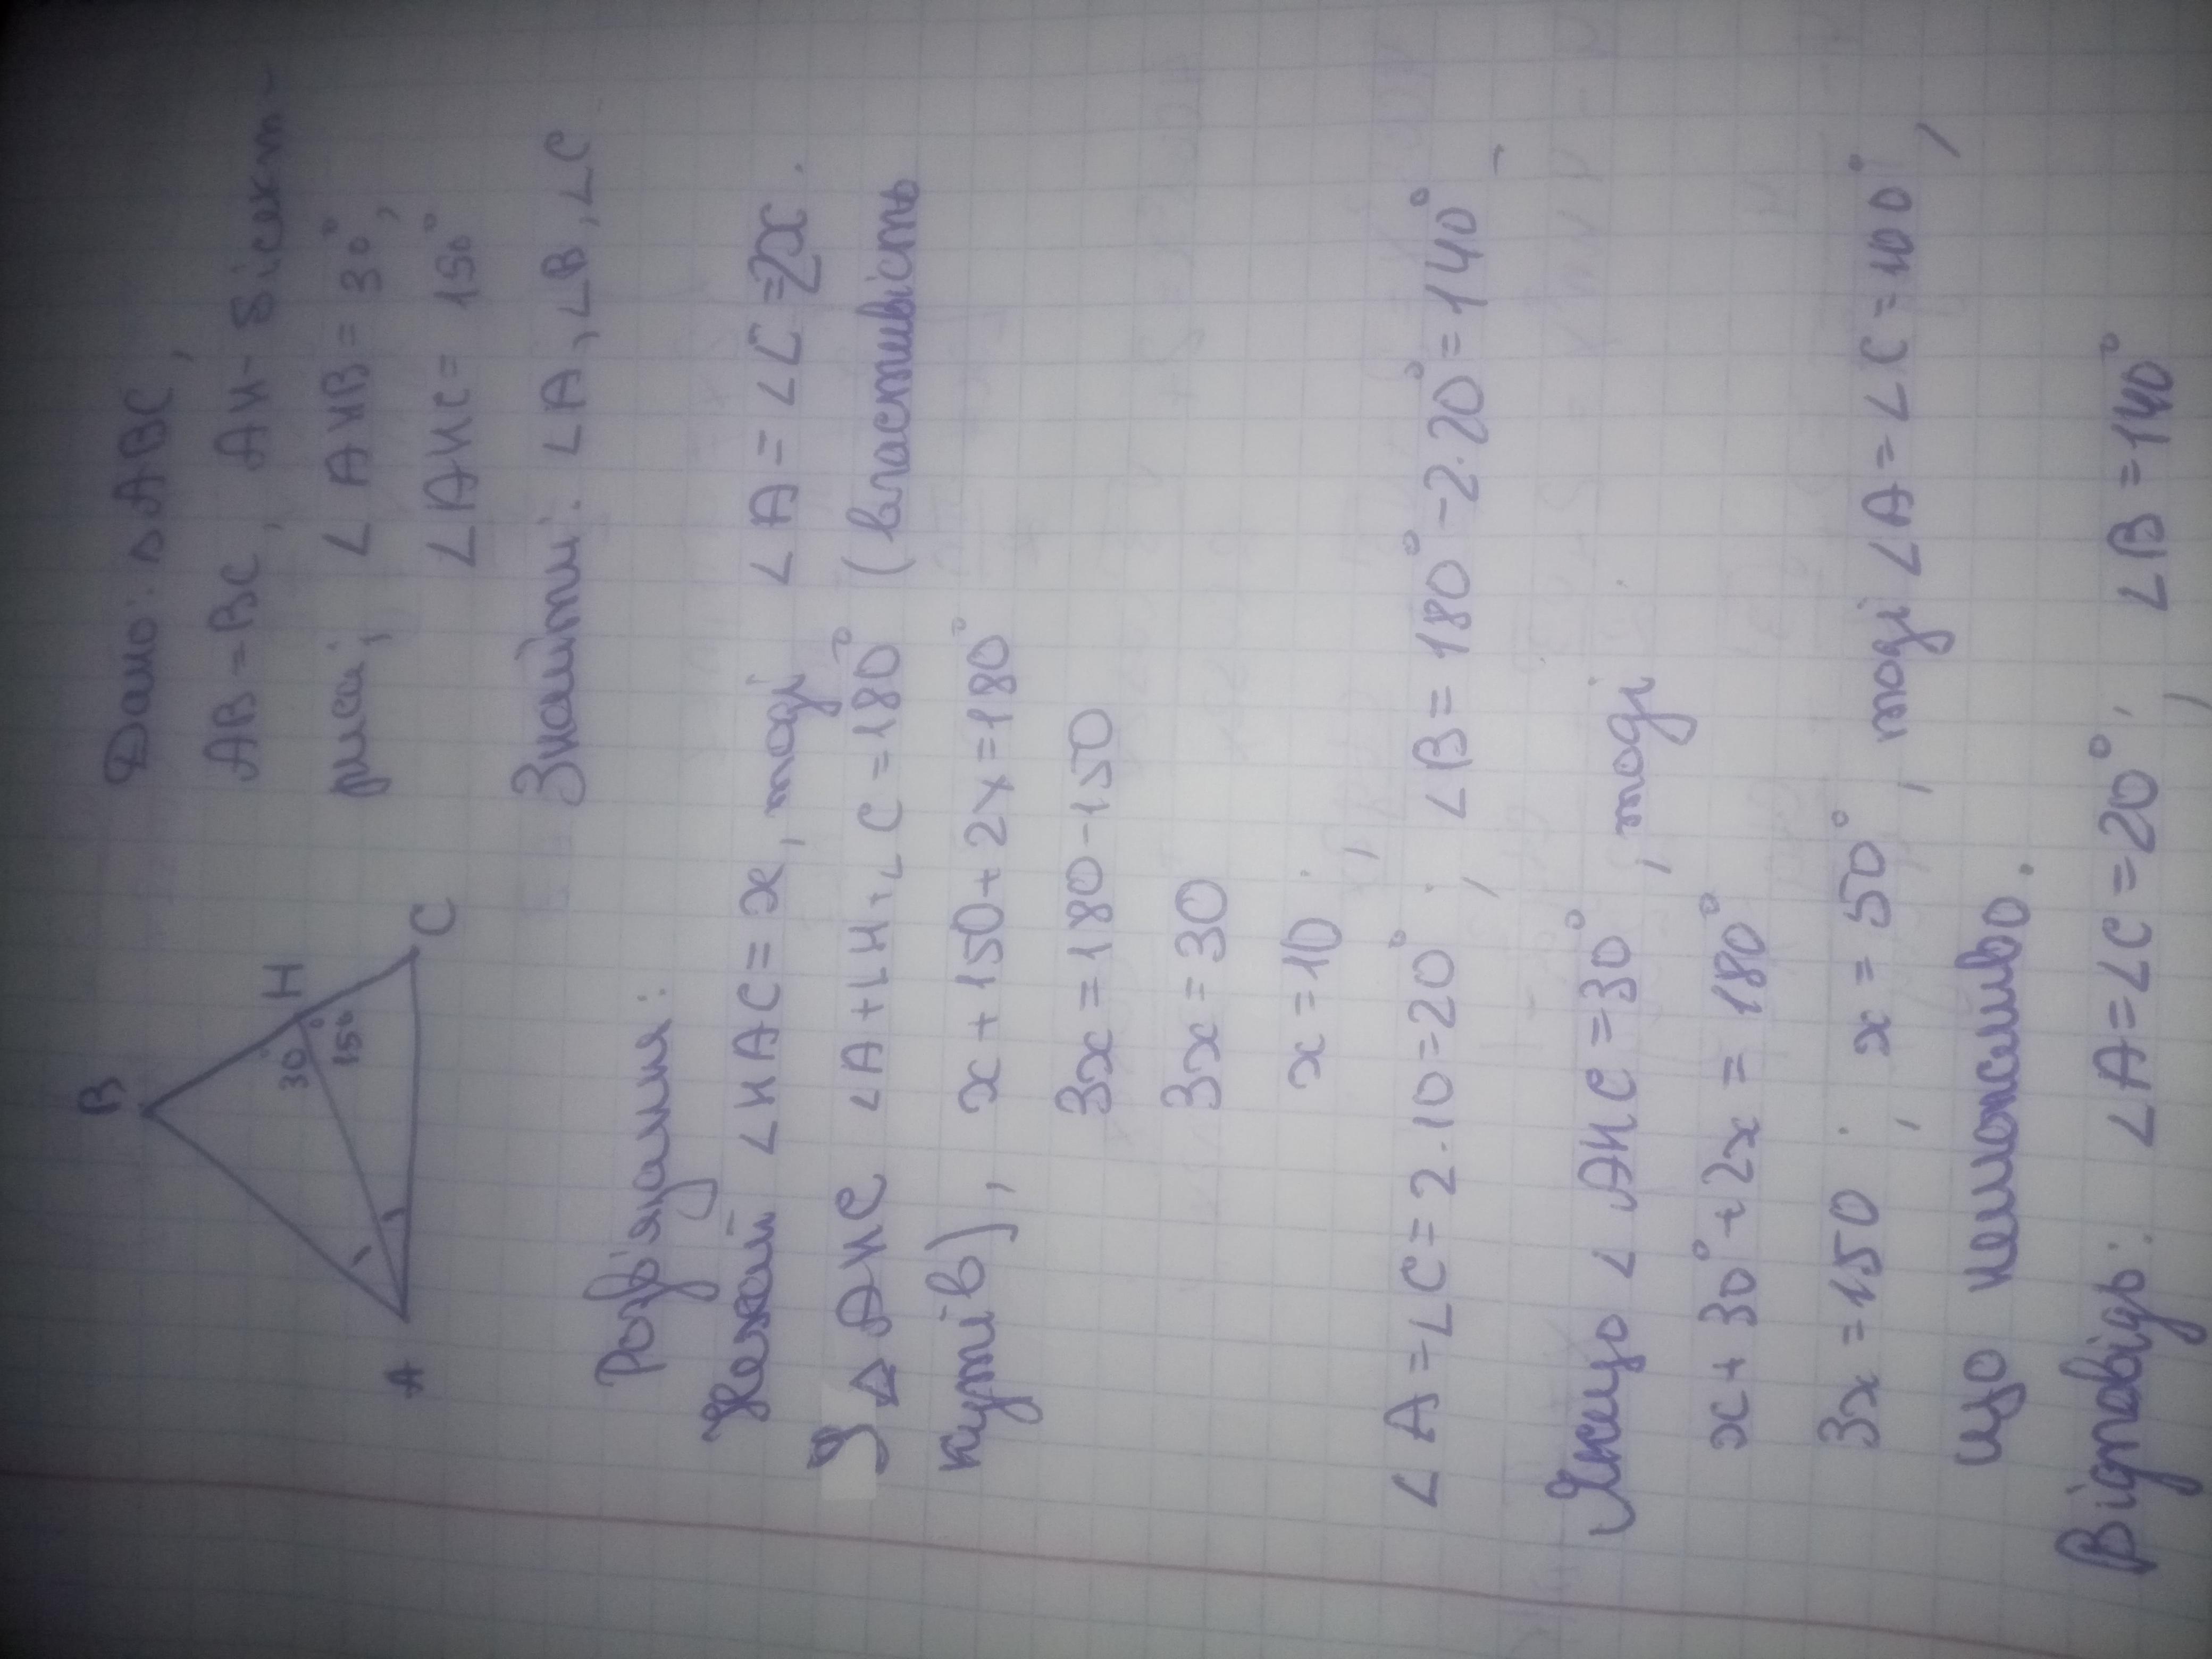 B
H
30
150
A
C
Дано: △ABC,
AB=BC, AH-бісект-
риса, ∠AHB=30°,
∠AHC=150°
Знайти: ∠A, ∠B, ∠C
Розв'язання:
Нехай ∠HAC=x, тоді ∠A=∠C=2x.
У △AHC ∠A+∠H+∠C=180° (властивість
кутів), x+150+2x=180°
3x=180-150
3x=30
x=10;
∠A=∠C=2·10=20°; ∠B=180°-2·20°=140°
Якщо ∠AHC=30°, тоді
x+30°+2x=180°
3x=150; x=50°, тоді ∠A=∠C=100°,
що неможливо.
Відповідь: ∠A=∠C=20°; ∠B=140°